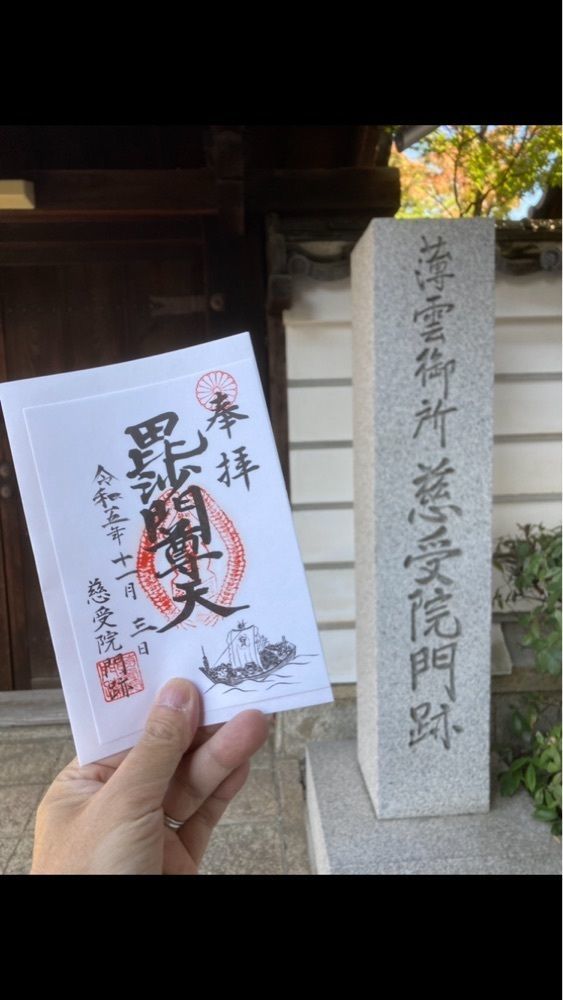 奉拝
毘沙門尊天
令和五年十一月三日
慈受院門跡
薄雲御所慈受院門跡